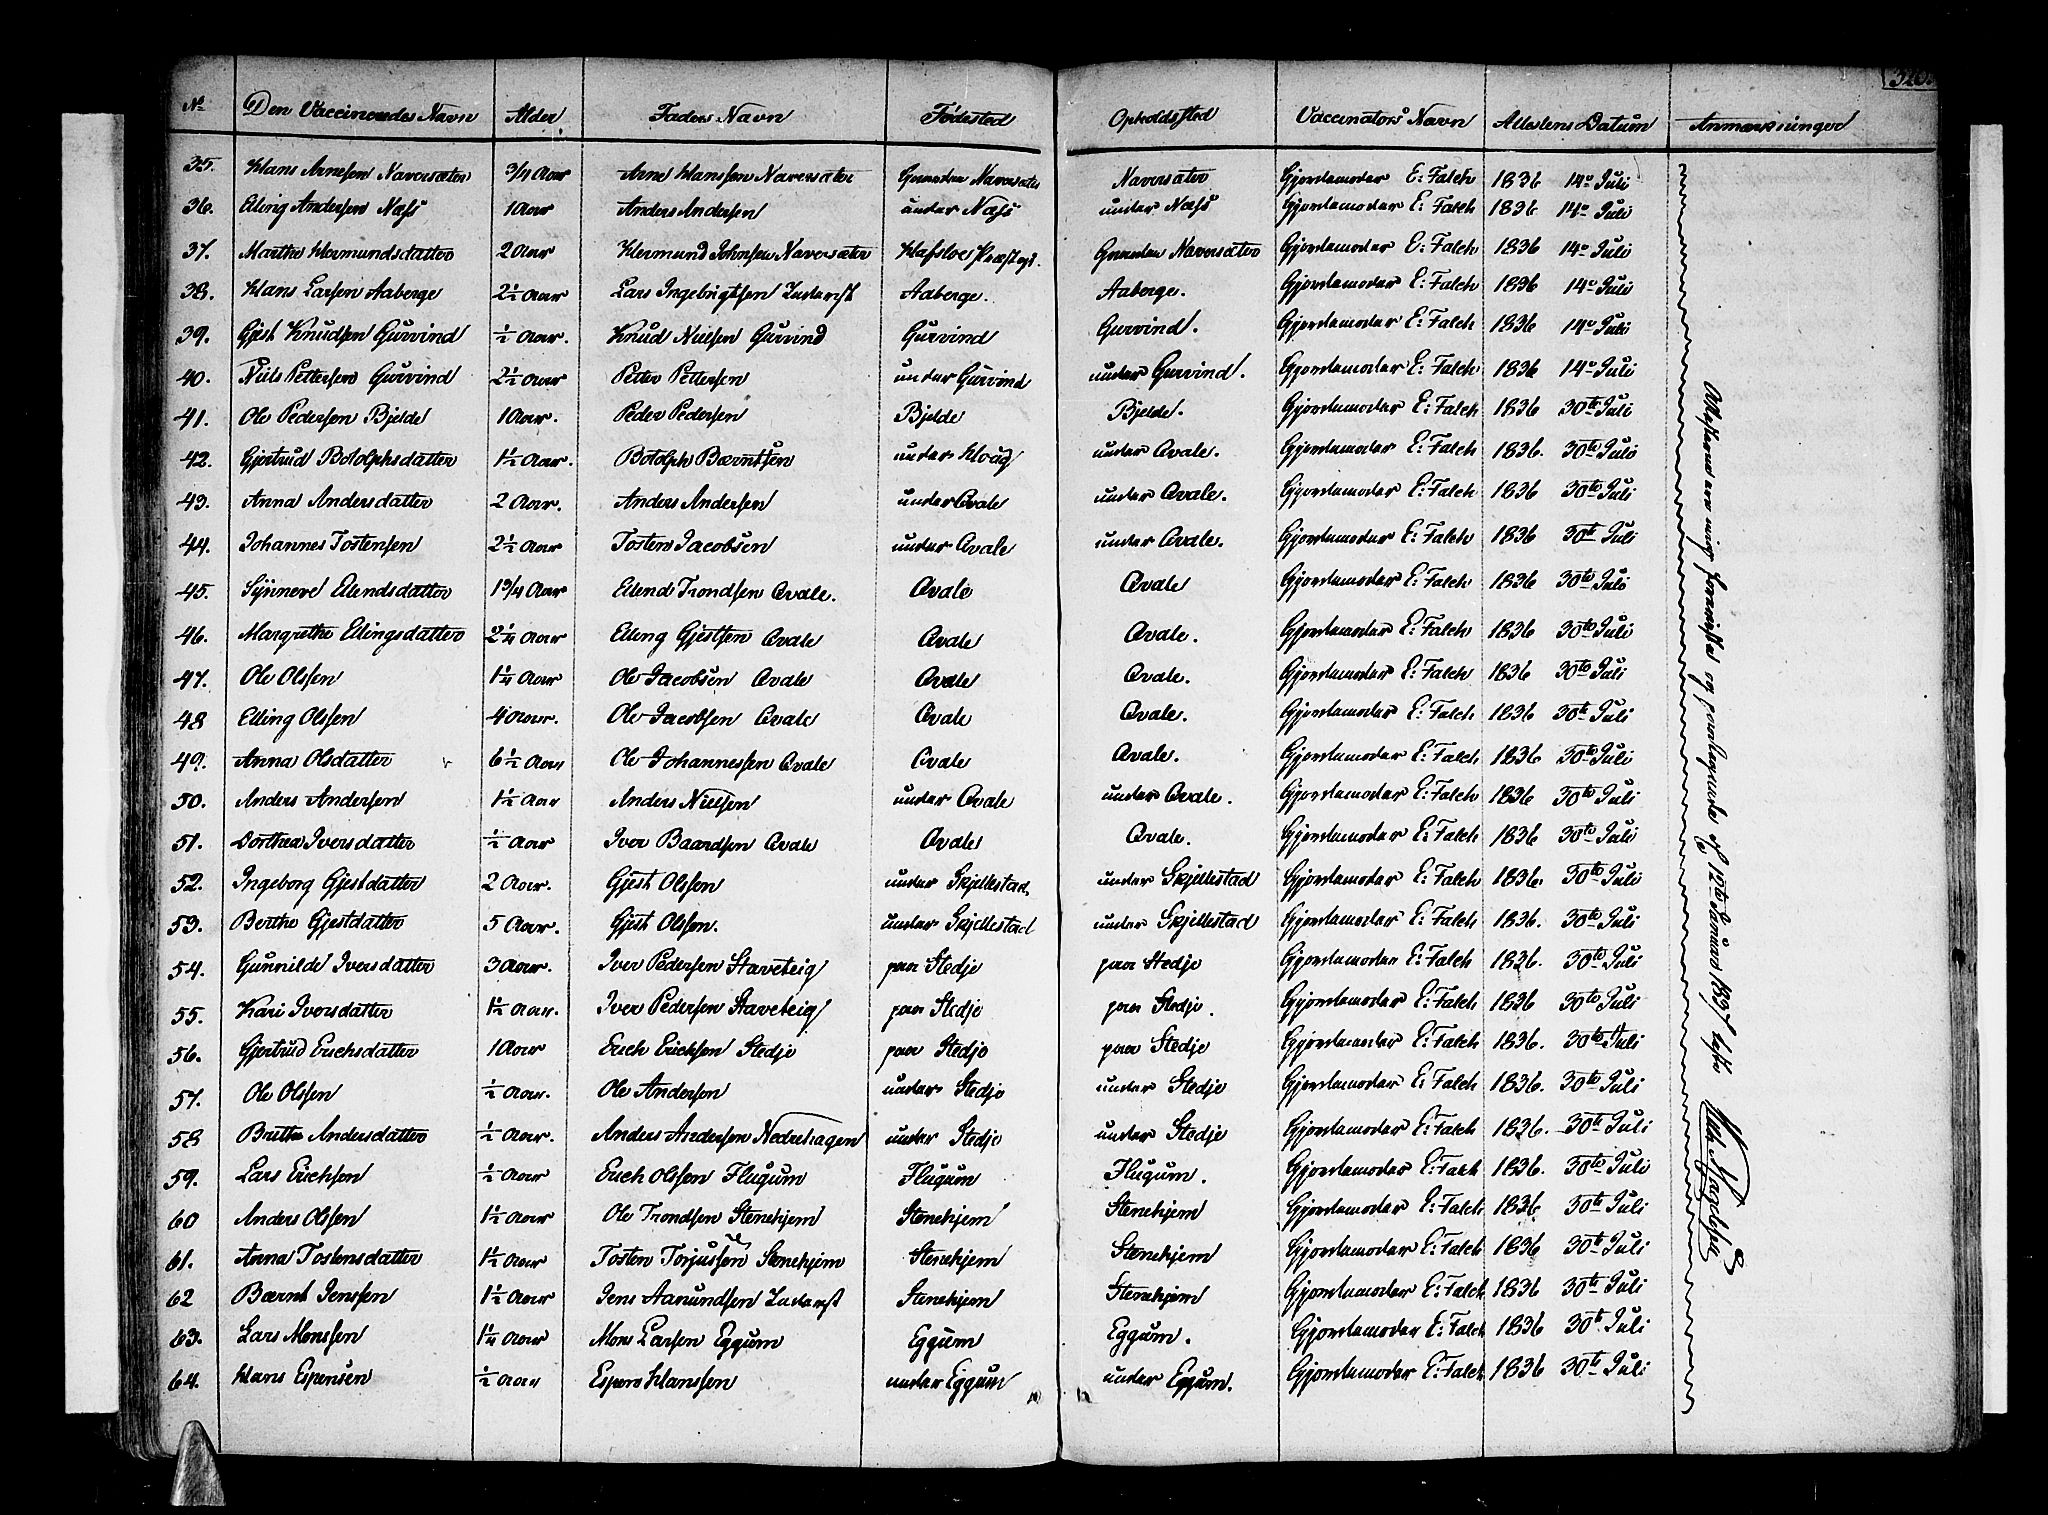 No Den Vaccineredes Navn Alder Faders Navn Fødested Opholdssted Vaccinators Navn Attestens Datum Anmærkninger
35. Hans Arnesen Naversæter 3/4 Aar Arne Hanssen Naversæter Gaarden Naversæter Naversæter Gjordemoder E: Falch 1836 14e Juli
36. Elling Andersen Næss 1 Aar Anders Andersen under Næss under Næss Gjordemoder E: Falch 1836 14e Juli
37. Marthe Hermundsdatter 2 Aar Hermund Johnsen Naversæter Hafsloe Præstegd. Gaarden Naversæter Gjordemoder E: Falch 1836 14e Juli
38. Hans Larsen Aaberge 2 1/2 Aar Lars Ingebrigtsen Inderst Aaberge. Aaberge. Gjordemoder E: Falch 1836 14e Juli
39. Gjest Knudsen Gurvind 1/2 Aar. Knud Nielsen Gurvind Gurvind Gurvind. Gjordemoder E: Falch 1836 14e Juli
40. Niels Pettersen Gurvind 2 1/2 Aar Petter Pettersen under Gurvind under Gurvind. Gjordemoder E: Falch 1836 14e Juli
41. Ole Pedersen Bjelde 1 Aar. Peder Pedersen Bjelde Bjelde. Gjordemoder E: Falch 1836 30te Juli
42. Gjertrud Botolphsdatter 1 1/2 Aar. Botolph Bærntsen under Hvåg under Qvale. Gjordemoder E: Falch 1836. 30te Juli
43. Anna Andersdatter 2 Aar. Anders Andersen under Qvale under Qvale. Gjordemoder E: Falch 1836 30te Juli
44. Johannes Tostensen 2 1/2 Aar Tosten Jacobsen under Qvale under Qvale. Gjordemoder E: Falch 1836 30te Juli
45. Synneve Ellendsdatter 1 3/4 Aar Ellend Trondsen Qvale. Qvale Qvale Gjordemoder E: Falch 1836 30te Juli
46. Margrethe Ellingsdatter 2 1/4 Aar Elling Gjestsen Qvale Qvale Qvale. Gjordemoder E: Falch 1836 30te Juli
47. Ole Olssen 1 1/4 Aar Ole Jacobsen Qvale Qvale Qvale. Gjordemoder E: Falch 1836 30te Juli
48 Elling Olssen 4 Aar. Ole Jacobsen Qvale Qvale Qvale. Gjordemoder E: Falch 1836 30te Juli
49. Anna Olsdatter 6 1/2 Aar Ole Johannessen Qvale Qvale Qvale. Gjordemoder E: Falch 1836 30te Juli
50. Anders Andersen 1 1/2 Aar Anders Nielsen under Qvale under Qvale. Gjordemoder E: Falch 1836 30te Juli
51. Dorthea Iversdatter 1/2 Aar Iver Baardsen Qvale Qvale Qvale. Gjordemoder E: Falch 1836 30te Juli
52. Ingeborg Gjestdatter 2 Aar. Gjest Olssen under Skjellestad, under Skjellestad Gjordemoder E: Falch 1836. 30te Juli
53. Berthe Gjestdatter 5 Aar. Gjest Olssen. under Skjellestad under Skjellestad Gjordemoder E: Falch 1836. 30te Juli
54. Gunnilde Iversdatter 3 Aar. Iver Pedersen Staveteig paa Stedje paa Stedje Gjordemoder E: Falch 1836. 30te Juli
55. Kari Iversdatter 1 1/2 Aar. Iver Pedersen Staveteig paa Stedje paa Stedje. Gjordemoder E: Falch 1836 30te Juli
56. Gjertrud Erichsdatter 1 Aar Erich Erichsen Stedje paa Stedje paa Stedje Gjordemoder E: Falch 1836. 30te Juli
57. Ole Olssen 1/2 Aar. Ole Andersen under Stedje under Stedje Gjordemoder E: Falch 1836. 30te Juli
58 Brithe Andersdatter 1/2 Aar. Anders Andersen Nedrehagen under Stedje under Stedje Gjordemoder E: Falch 1836. 30te Juli
59. Lars Erichsen 1/2 Aar Erich Olssen Flugum Flugum Flugum. Gjordemoder E: Falch 1836. 30te Juli
60 Anders Olssen 1 1/2 Aar Ole Trondsen Stenehjem Stenehjem Stenehjem Gjordemoder E: Falch 1836 30te Juli
61. Anna Tostensdatter 1 1/2 Aar Tosten Torjussen Stenehjem Stenehjem Stenehjem Gjordemoder E: Falch 1836 30te Juli
62 Bærnt Jenssen 1 1/2 Aar Jens Aamundsen Inderst Stenehjem Stenehjem Gjordemoder E: Falch 1836 30te Juli
63. Lars Monssen 1 1/4 Aar Mons Larsen Eggum Eggum Eggum. Gjordemoder E: Falch 1836 30te Juli
64. Hans Espensen 1/2 Aar Espen Hanssen under Eggum under Eggum. Gjordemoder E: Falch 1836 30te Juli
Attesterne ere mig foreviste og af 12te Januar 1837